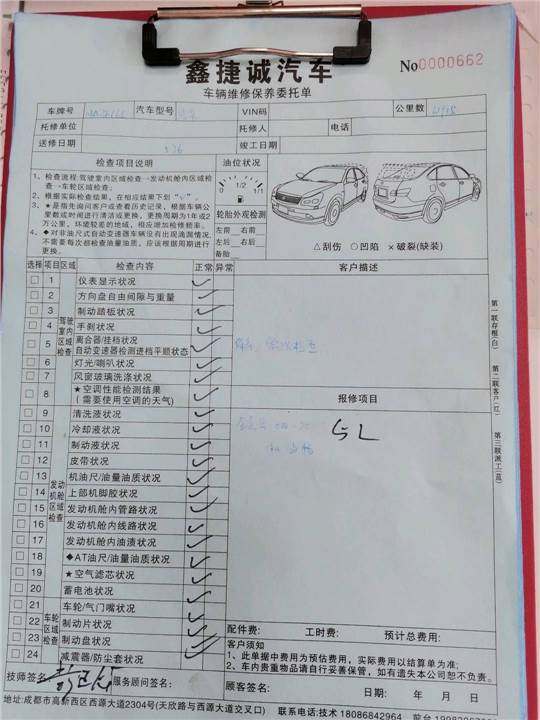 鑫捷诚汽车
No0000662
车辆维修保养委托单
车牌号 汽车型号 VIN码 公里数
托修单位 托修人 电话
送修日期 竣工日期
检查项目说明
1、检查流程:驾驶室内区域检查→发动机舱内区域检查→车轮区域检查。
2、根据实际检查结果，在相应结果下划“√”。
3、★是指先询问客户或查看历史记录，根据车辆公里数或时间进行清洁或更换，更换周期为1年或2万公里，环境较差的地域，相应增加检修频率。
4、◆对非油尺式自动变速器车辆没有出现渗漏情况，不需要每次都检查油量油质，应该根据周期进行更换。
油位状况
0 1/2 1/1
轮胎外观检测
左前 右前
左后 右后
备胎
△刮伤 ○凹陷 ×破裂(缺装)
选择 项目 区域 检查内容 正常 异常
驾驶室内区域检查
1 仪表显示状况
2 方向盘自由间隙与重量
3 制动踏板状况
4 手刹状况
5 离合器/挂档状况
自动变速器检测进档平顺状态
6 灯光/喇叭状况
7 风窗玻璃洗涤状况
8 ★空调性能检测结果
(需要使用空调的天气)
发动机舱区域检查
9 清洗液状况
10 冷却液状况
11 制动液状况
12 皮带状况
13 机油尺/油量油质状况
14 上部机脚胶状况
15 发动机舱内管路状况
16 发动机舱内线路状况
17 发动机舱内油渍状况
18 ◆AT油尺/油量油质状况
19 ★空气滤芯状况
20 蓄电池状况
车轮区域检查
21 车轮/气门嘴状况
22 制动片状况
23 制动盘状况
24 减震器/防尘套状况
客户描述
报修项目
5L
第一联存根(白)
第二联客户(红)
第三联派工(蓝)
配件费: 工时费: 预计总费用:
客户须知
1、此单据中费用为预估费用，实际费用以结算单为准;
2、车内贵重物品请自行妥善保管，如有遗失本公司恕不负责。
技师签名: 服务顾问签名: 顾客签名: 日期: 年 月 日
地址:成都市高新西区西源大道2304号(天欣路与西源大道交叉口) 联系电话:技术 18086842964 前台